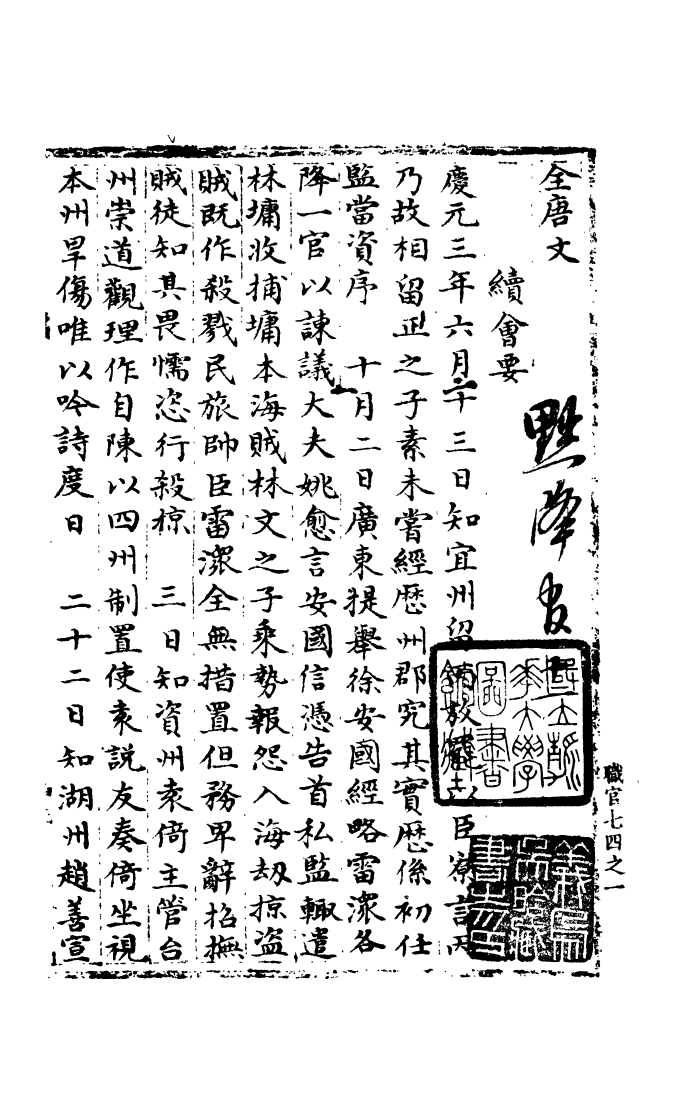 全唐文
續會要
黜降官
慶元三年六月二十三日知宜州留放罷以臣寮言丙
乃故相留正之子素未嘗經歷州郡究其實歷係初任
監當資序　十月二日廣東提舉徐安國經略雷澟各
降一官以諫議大夫姚愈言安國信憑告首私監輙遣
林墉收捕墉本海賊林文之子乘勢報怨入海刼掠盗
賊既作殺戮民旅帥臣雷澟全無措置但務卑辭招撫
賊徒知其畏懦恣行殺掠　三日知資州袁倚主管台
州崇道觀理作自陳以四州制置使袁說友奏倚坐視
本州旱傷唯以吟詩度日　二十二日知湖州趙善宣
國立靜
江大學
圖書
職官七四之一